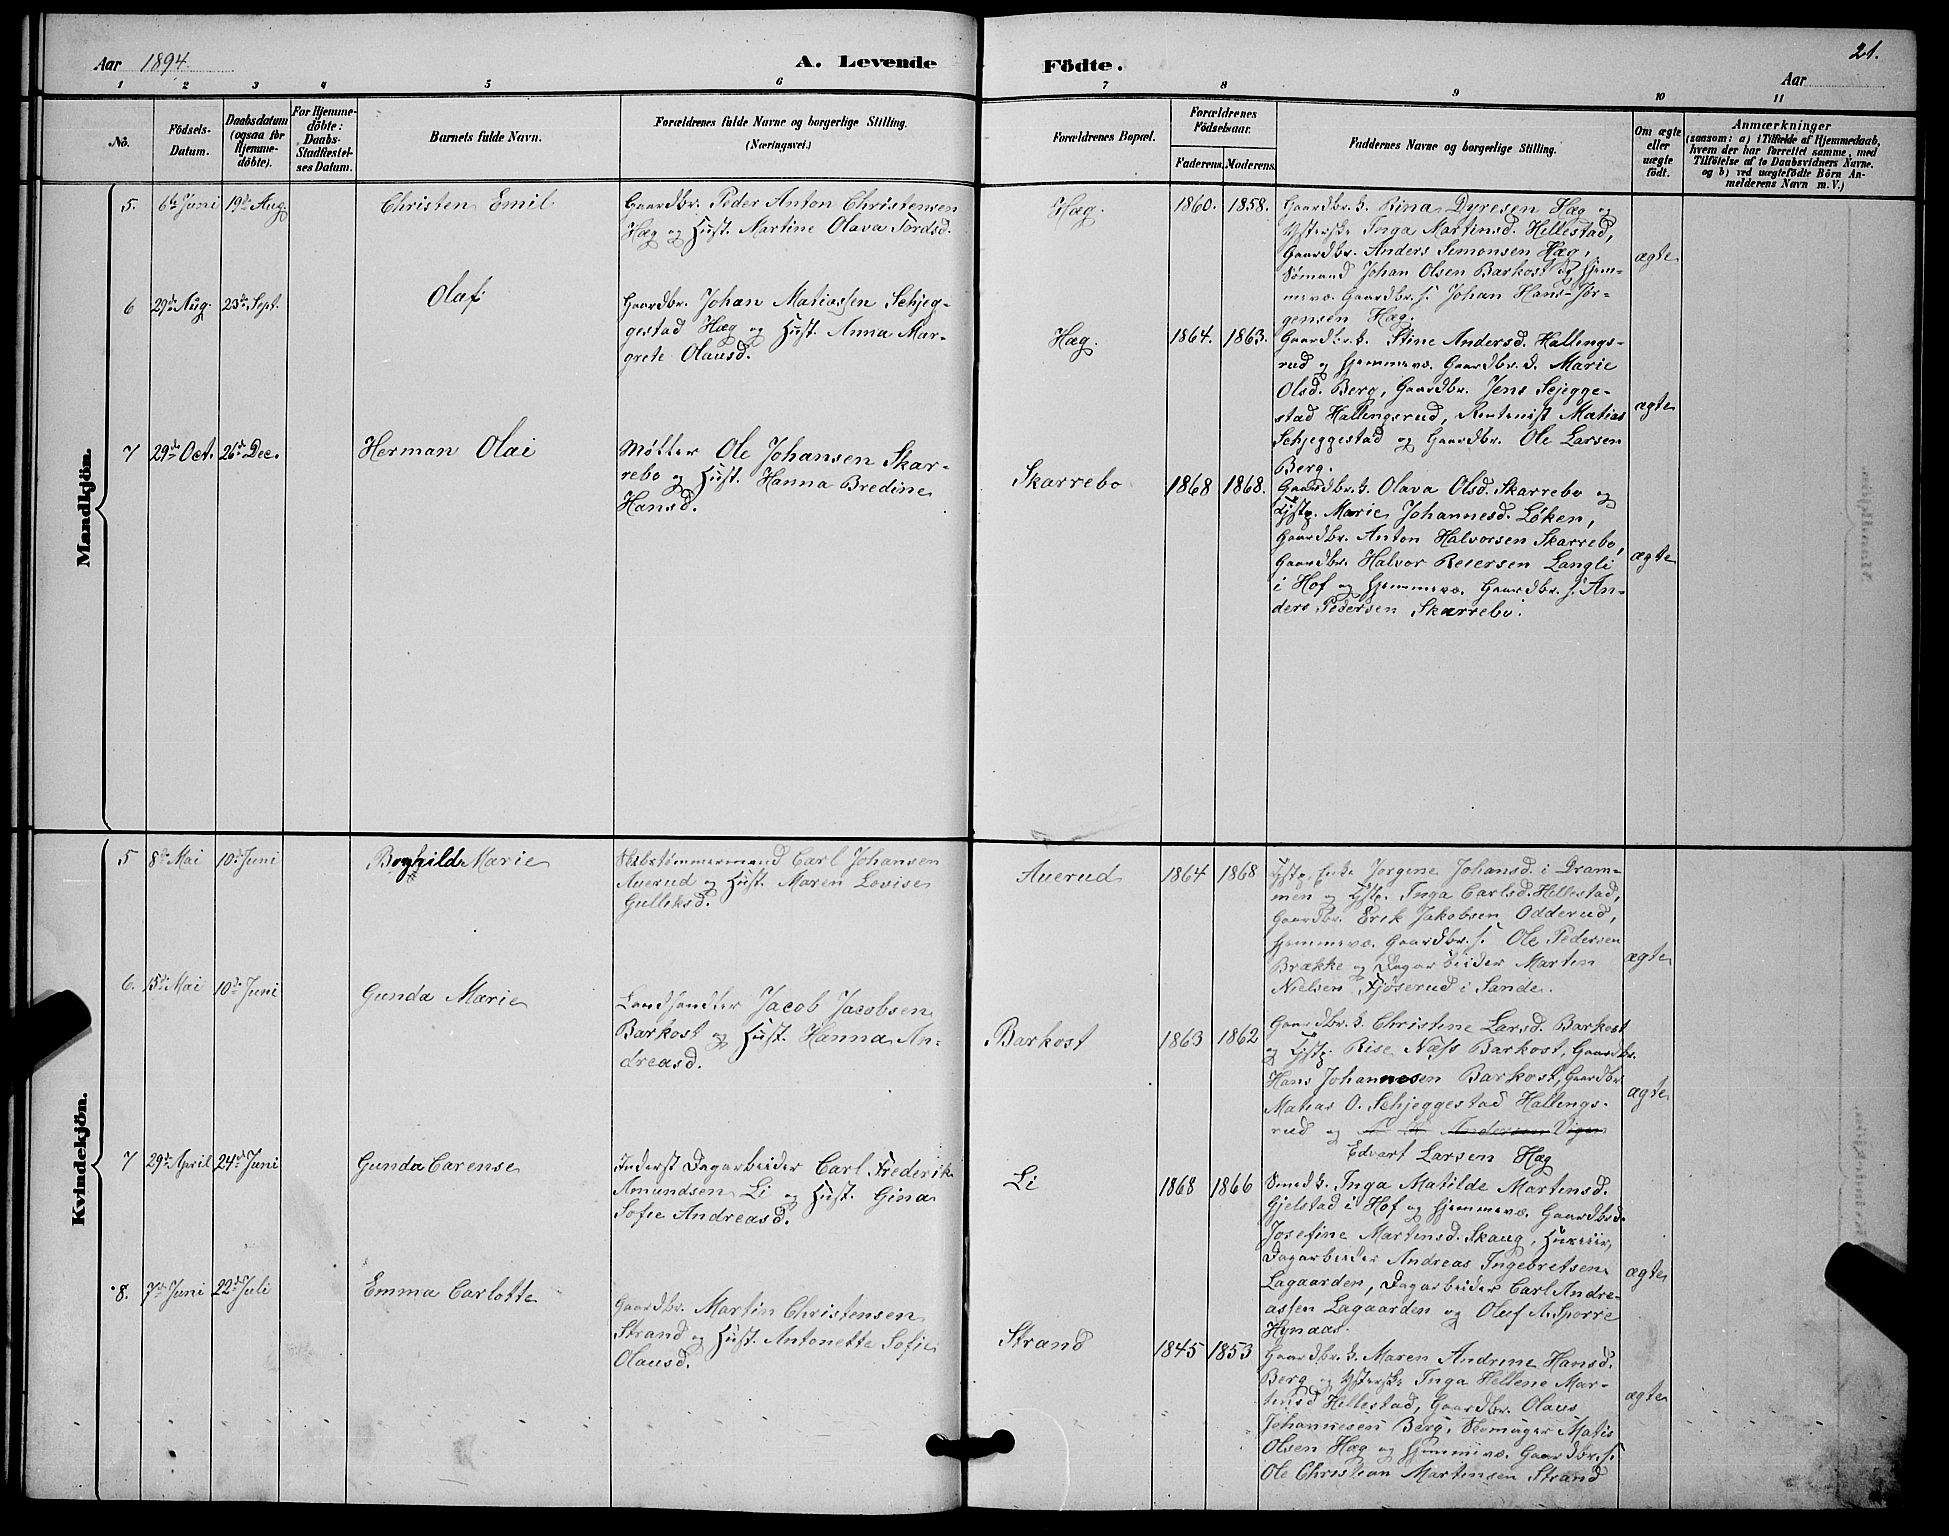 Aar 1894.
A. Levende Födte.
21.
Aar
1 2 3 4 5 6 7 8 9 10 11
No.
Födsels-Datum.
Daabsdatum (ogsaa for Hjemmedöbte).
For Hjemmedöbte: Daabs-Stadfestelses Datum.
Barnets fulde Navn.
Forældrenes fulde Navne og borgerlige Stilling.
(Næringsvei.)
Forældrenes Bopæl.
Forældrenes Födselsaar.
Faderens. Moderens.
Faddernes Navne og borgerlige Stilling.
Om ægte eller uægte födt.
Anmærkninger
(saasom: a) i Tilfælde af Hjemmedaab,
hvem der har forrettet samme, med
Tilföielse af to Daabsvidners Navne.
og b) ved uægtefödte Börn An-
melderens Navn m. V.)
Mandkjön.
5. 6te Juni 19de Aug. Christen Emil
Gaardbr. Peder Anton Christensen
Hæg og Hust. Martine Olava Tordsd.
Hæg. 1860. 1858.
Gaardbr. h. Rina Dyresen Hæg og
Ysterske Inga Martinsd. Hellestad,
Gaardbr. Anders Simonsen Hæg,
Sømand Johan Olsen Barkost og hjem-
mevæ. Gaardbr. s. Johan Hans Jör-
gensen Hæg.
ægte
6 29de Aug. 23de Sept. Olaf
Gaardbr. Johan Matiassen Schjeg-
gestad Hæg og Hust. Anna Mar-
grete Olausd.
Hæg. 1864. 1863.
Gaardbr. h. Stine Andersd. Hallings-
rud og hjemmevæ. Gaardbr. d. Marie
Olsd. Berg, Gaardbr. Jens Sejegge-
stad Hallingsrud, Rentenist Matias
Schjeggestad og Gaardbr. Ole Larsen
Berg.
ægte
7 29de Oct. 26de Dec. Herman Olai
Møller Ole Johansen Skar-
rebo og Hust. Hanna Bredine
Hansd.
Skarrebo 1868 1868.
Gaardbr. h. Olava Olsd. Skarrebo og
Tjstp. Marie Johannesd. Löken,
Gaardbr. Anton Halvorsen Skarrebo,
Gaardbr. Halvor Reiersen Langli
i Hof og hjemmevæ. Gaardbr. s. An-
ders Pedersen Skarrebo.
ægte
Kvindekjön.
5 8de Mai 10de Juni Boghild Marie
Skibstømmermand Carl Johansen
Auerud og Hust. Maren Lovise
Gulliksd.
Auerud 1864 1868
Tjstp. Enke Jorgine Johansd. i Dram-
men og Tjstp. Inga Carlsd. Hellestad,
Gaardbr. Erik Jakobsen Odderud,
hjemmevæ. Gaardbr. s. Ole Pedersen
Brække og Dagarbeider Martin
Nielsen Fjöserud i Sande.
ægte
6. 15de Mai 10de Juni Gunda Marie
Landhandler Jacob Jacobsen
Barkost og Hust. Hanna An-
dreasd.
Barkost 1863 1862
Gaardbr. h. Christine Larsd. Barkost
og Tjstp. Rise Næss Barkost, Gaardbr.
Hans Johannesen Barkost, Gaardbr.
Matias O. Schjeggestad Hallings-
rud og Andersen Vigen
Edvart Larsen Hæg
ægte
7 29de April 24de Juni Gunda Carense
Inderst Dagarbeider Carl Frederik
Amundsen Li og Hust. Gina
Sofie Andreasd.
Li 1868 1866
Smed h. Inga Matilde Martinsd.
Gjelstad i Hof og hjemmevæ. Gaardbr. d.
Josefine Martinsd. Skaug, Huseier,
Dagarbeider Andreas Ingebretsen
Lagaarden, Dagarbeider Carl Andre-
assen Lagaarden og Oluf A. Sporre
Hynaas.
ægte
8. 7de Juni 22de Juli Emma Carlotte
Gaardbr. Martin Christensen
Strand og Hust. Antonette Sofie
Olausd.
Strand 1845 1853
Gaardbr. h. Maren Andrine Hansd.
Berg og Ysterske Inga Hellene Mar-
tinsd Hellestad, Gaardbr. Olaus
Johannesen Berg, Skomager Matis
Olsen Hæg og hjemmevæ. Gaardbr. s.
Ole Christian Martinsen Strand
ægte